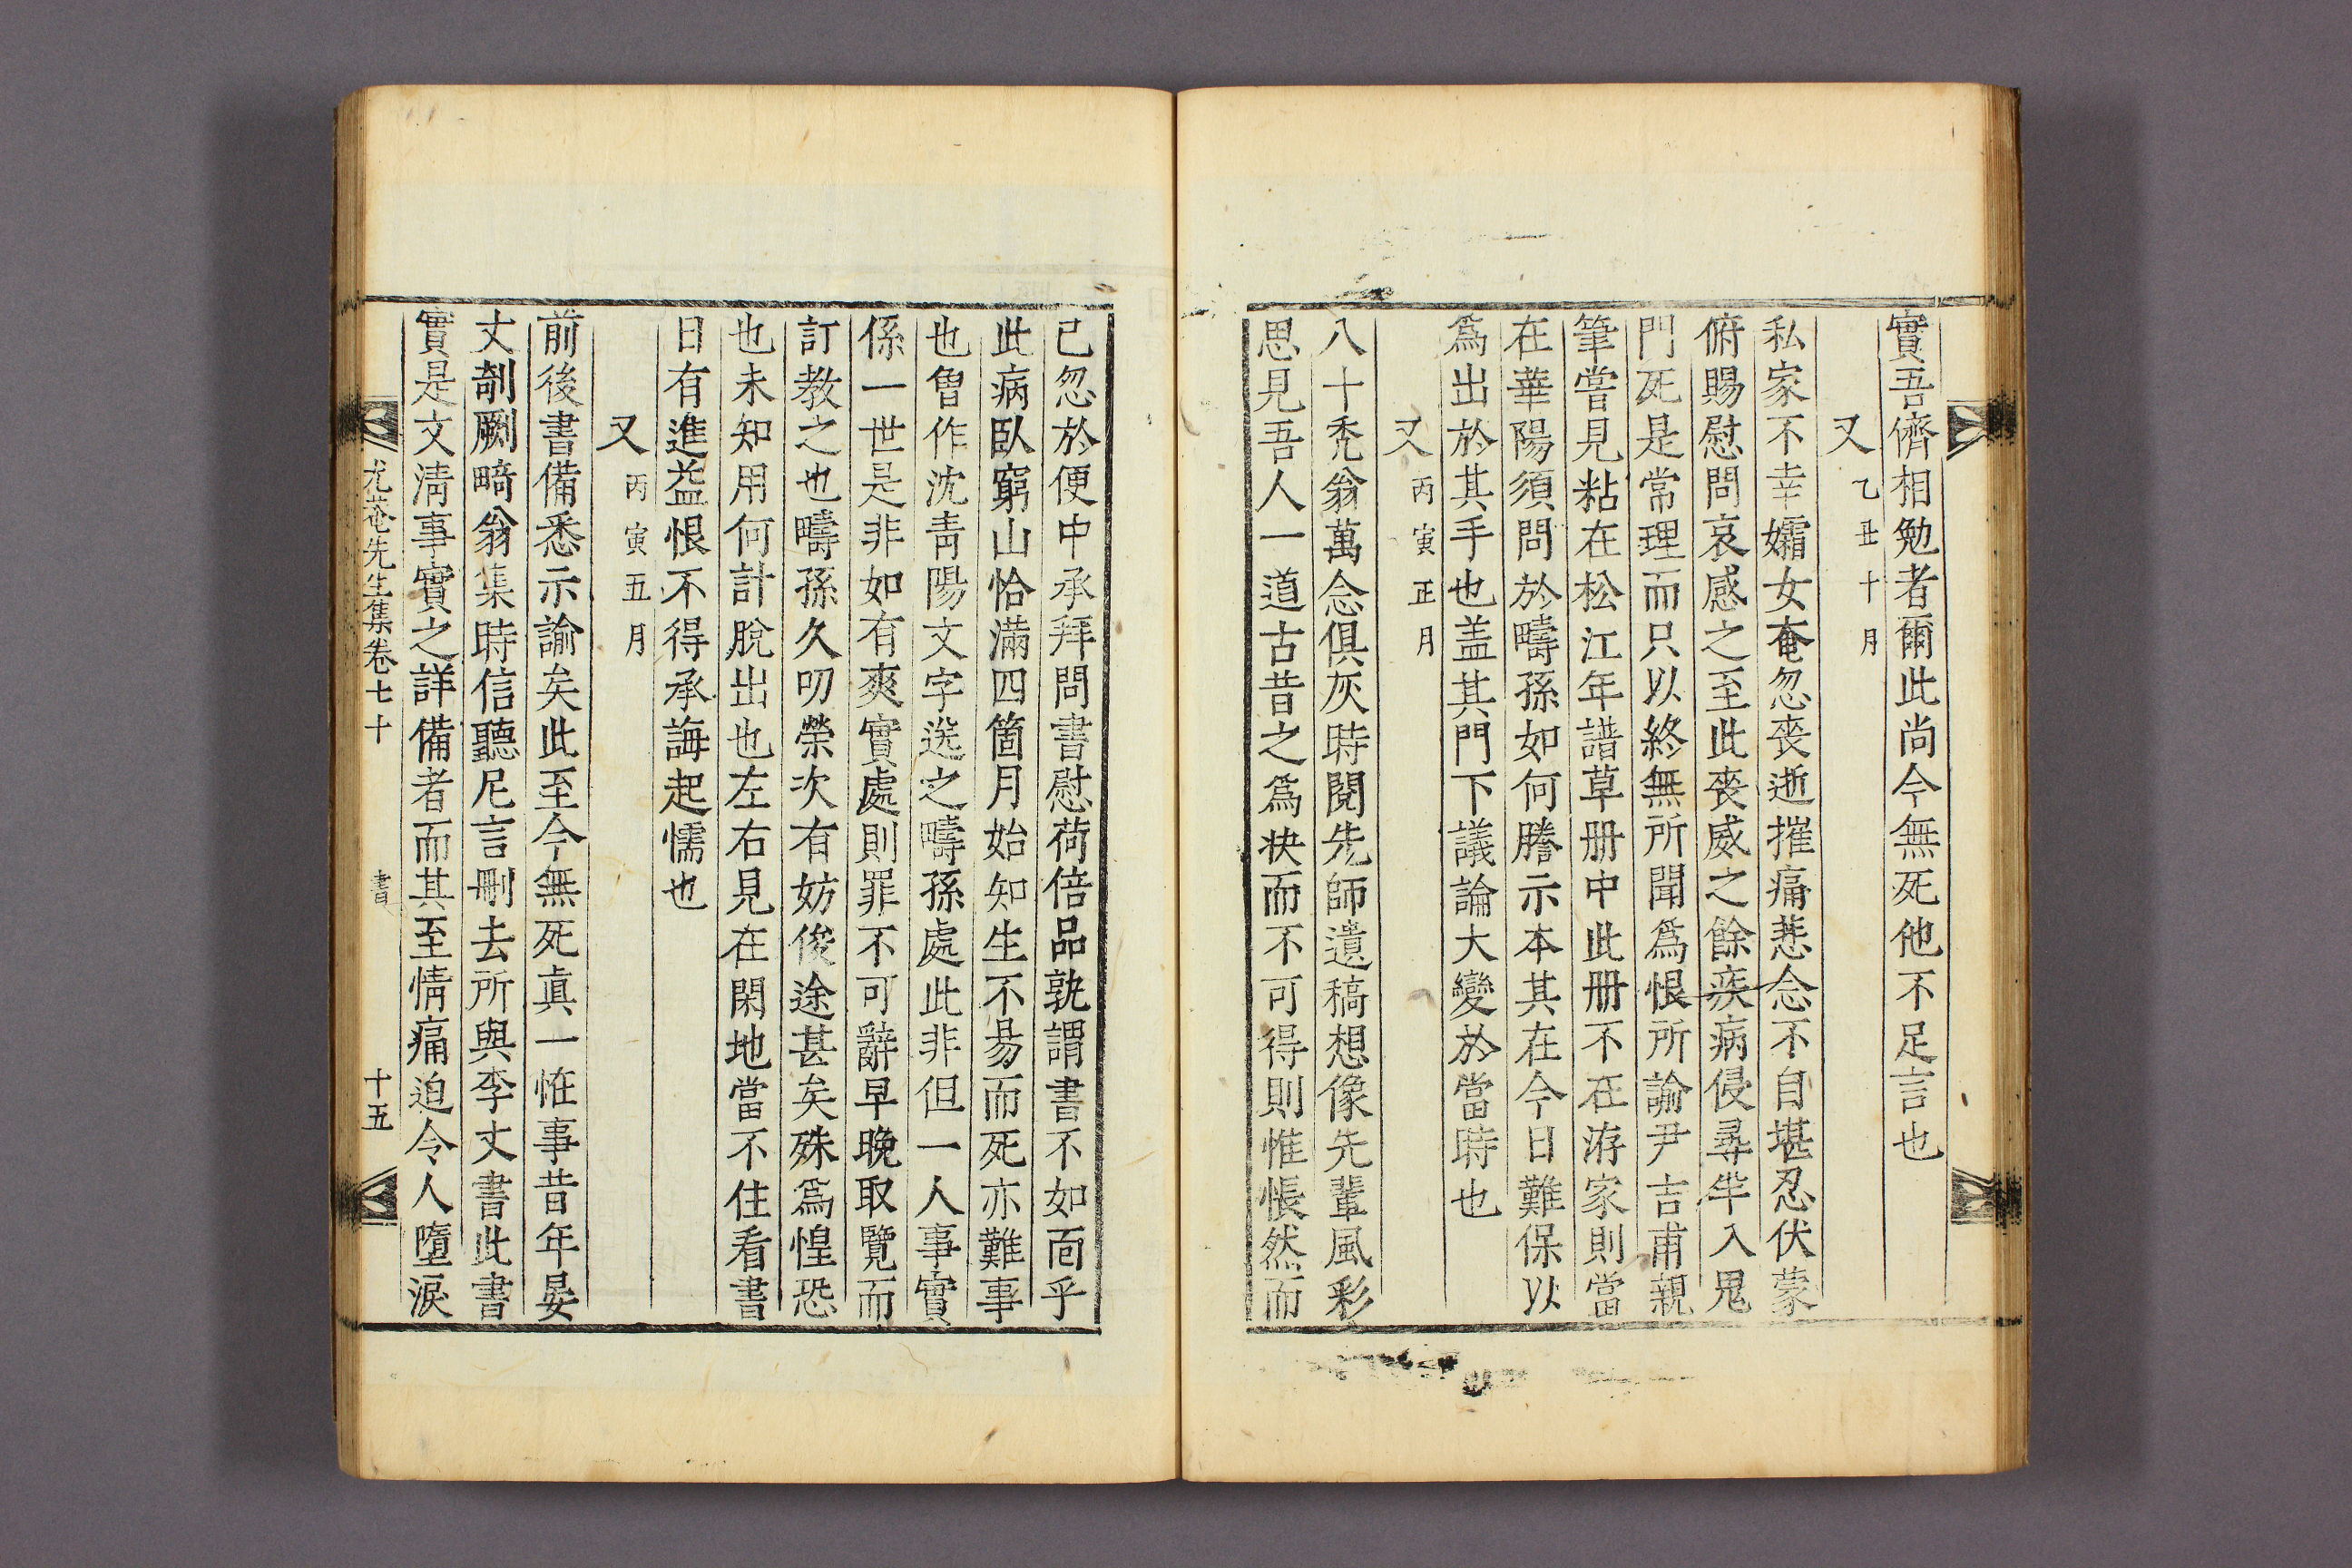 實吾儕相勉者爾此尚今無死他不足言也
又乙丑十月
私家不幸孀女奄忽喪逝摧痛悲念不自堪忍伏蒙
俯賜慰問哀感之至此喪威之餘疾病侵尋半入鬼
門死是常理而只以終無所聞爲恨所諭尹吉甫親
筆嘗見粘在松江年譜草册中此册不在洊家則當
在華陽須問於疇孫如何謄示本其在今日難保以
爲出於其手也盖其門下議論大變於當時也
又丙寅正月
八十禿翁萬念俱灰時閱先師遺稿想像先輩風彩
思見吾人一道古昔之爲快而不可得則惟悵然而
已忽於便中承拜問書慰荷倍品孰謂書不如面乎
此病臥窮山恰滿四箇月始知生不易而死亦難事
也曾作沈靑陽文字送之疇孫處此非但一人事實
係一世是非如有爽實處則罪不可辭早晚取覽而
訂教之也疇孫久叨榮次有妨俊途甚矣殊爲惶恐
也未知用何計脫出也左右見在閑地當不住看書
日有進益恨不得承誨起懦也
又丙寅五月
前後書備悉示諭矣此至今無死眞一恠事昔年晏
丈剞劂畸翁集時信聽尼言刪去所與李丈書此書
實是文淸事實之詳備者而其至情痛迫令人墮淚
尤菴先生集卷七十 書 十五